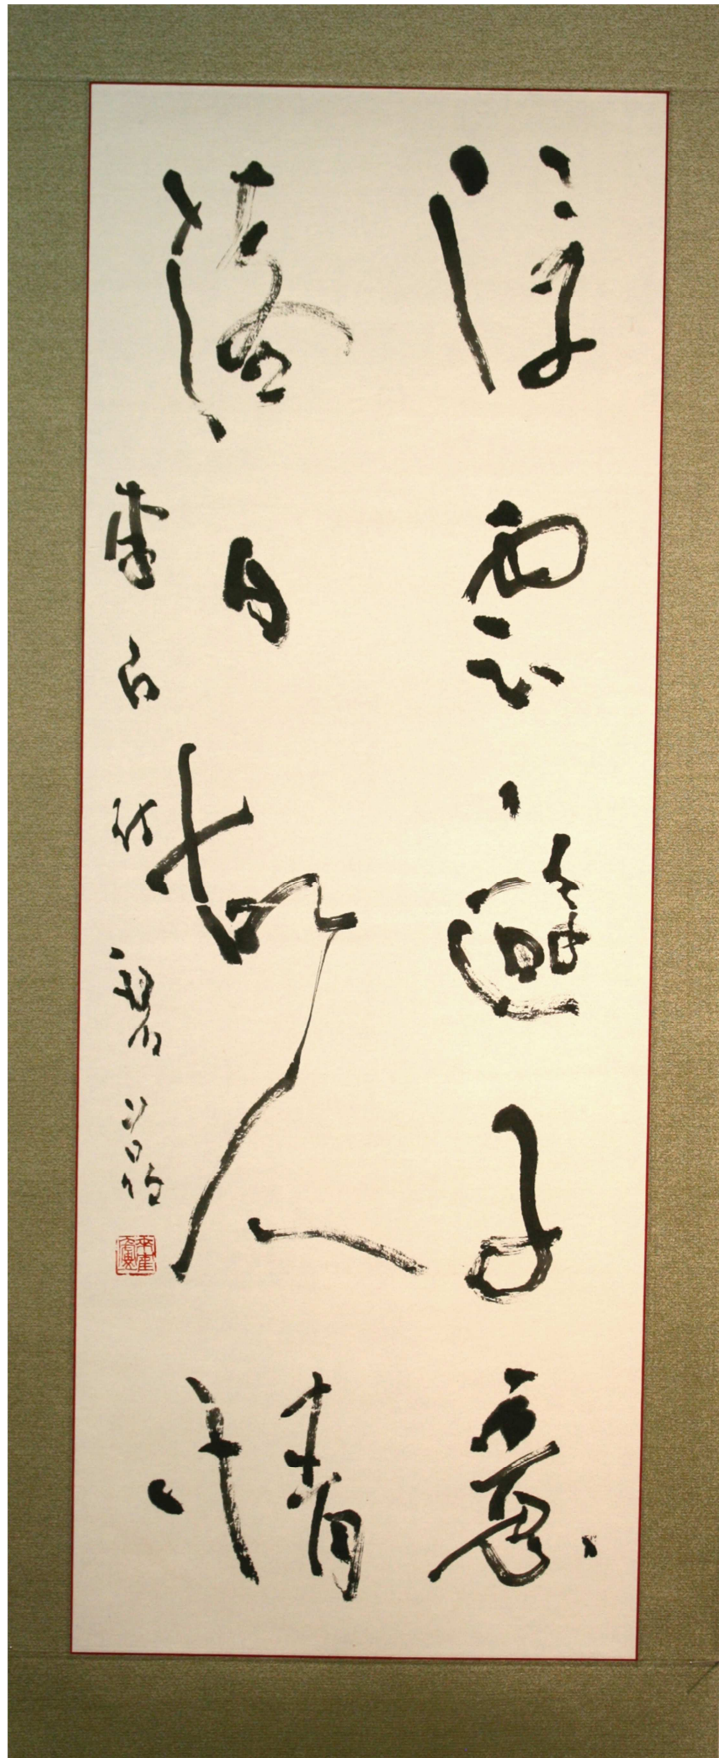 浮雲遊子意
落日故人情
李白詩